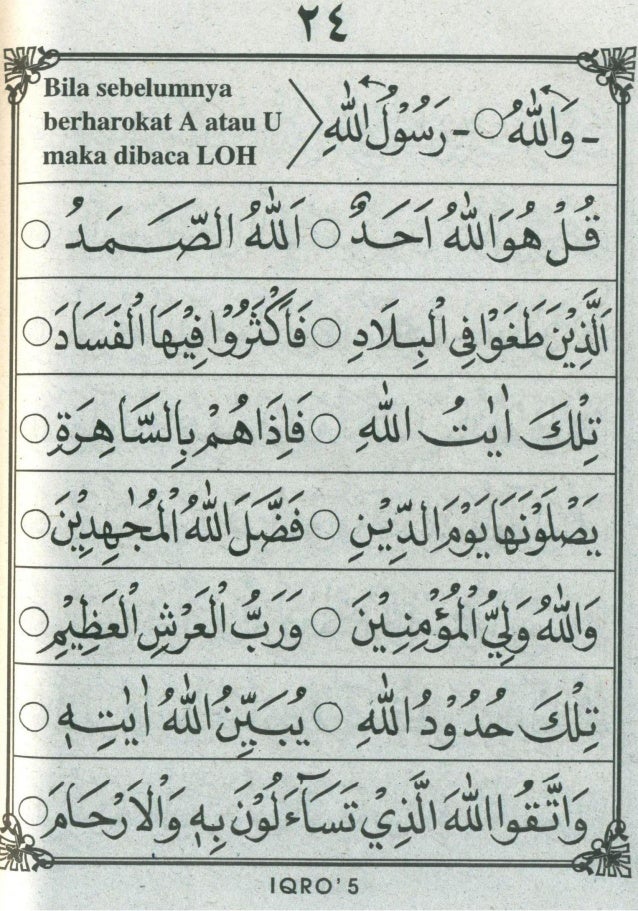 ٢٤
Bila sebelumnya
berharokat A atau U
maka dibaca LOH
- وَاللّٰهُ ○ - رَسُوْلُ اللّٰهِ
قُلْ هُوَاللّٰهُ اَحَدٌ ○ اَللّٰهُ الصَّمَدُ ○
اَلَّذِيْنَ طَغَوْا فِى الْبِلَادِ ○ فَاَكْثَرُوْا فِيْهَا الْفَسَادَ ○
تِلْكَ اٰيٰتُ اللّٰهِ ○ فَاِذَا هُمْ بِالسَّاهِرَةِ ○
يَصْلَوْنَهَا يَوْمَ الدِّيْنِ ○ فَضَّلَ اللّٰهُ الْمُجٰهِدِيْنَ ○
وَاللّٰهُ وَلِيُّ الْمُؤْمِنِيْنَ ○ وَرَبُّ الْعَرْشِ الْعَظِيْمِ ○
تِلْكَ حُدُوْدُ اللّٰهِ ○ يُبَيِّنُ اللّٰهُ اٰيٰتِهٖ ○
وَاتَّقُوا اللّٰهَ الَّذِيْ تَسَآءَلُوْنَ بِهٖ وَالْاَرْحَامَ ○
IQRO' 5